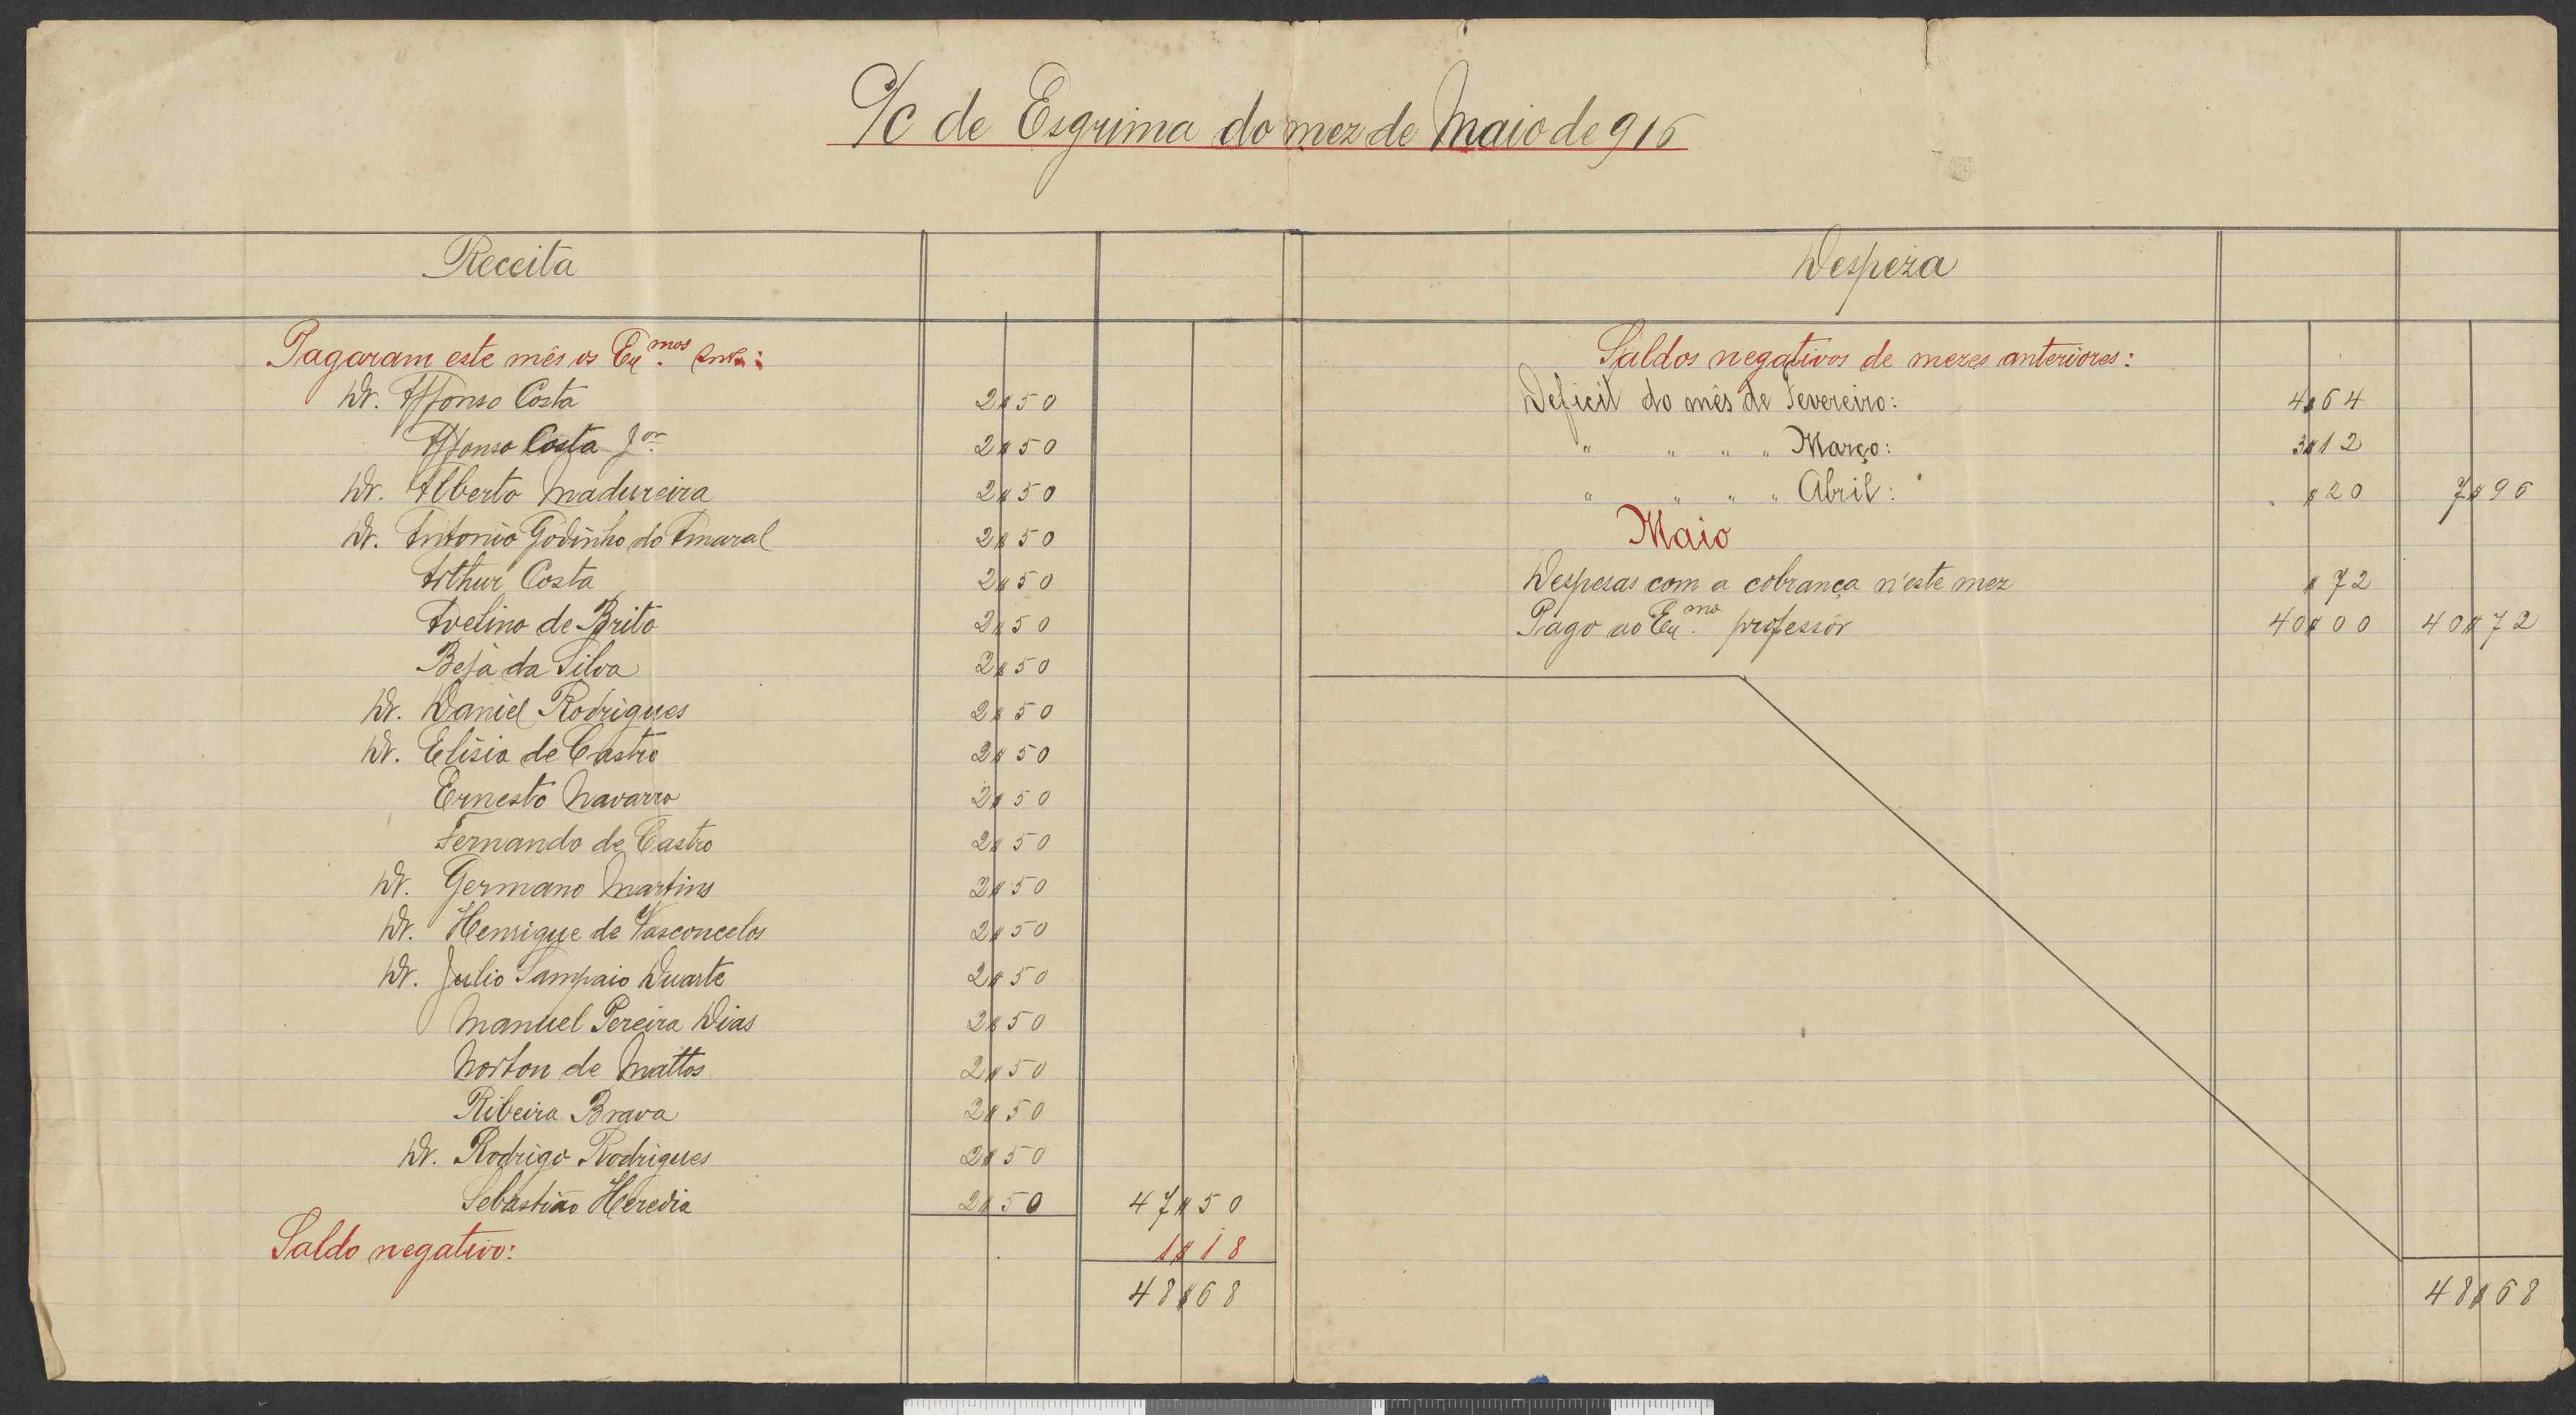 C/C de Esgrima do mez de Maio de 916
Receita
Pagaram este mês os Exmos. Snrs:
Dr. Affonso Costa 2$50
Affonso Costa Jor 2$50
Dr. Alberto Madureira 2$50
Dr. Antonio Godinho do Amaral 2$50
Arthur Costa 2$50
Avelino de Brito 2$50
Beja da Silva 2$50
Dr. Daniel Rodrigues 2$50
Dr. Elisio de Castro 2$50
Ernesto Navarro 2$50
Fernando de Castro 2$50
Dr. Germano Martins 2$50
Dr. Henrique de Vasconcelos 2$50
Dr. Julio Sampaio Duarte 2$50
Manuel Pereira Dias 2$50
Norton de Mattos 2$50
Ribeira Brava 2$50
Dr. Rodrigo Rodrigues 2$50
Sebastião Heredia 2$50 47$50
Saldo negativo: 1$18
48$68
Despeza
Saldos negativos de mezes anteriores:
Deficit do mês de Fevereiro: 4$64
" " " " Março: 3$12
" " " " Abril: $20 7$96
Maio
Despesas com a cobrança n'este mez $72
Pago ao Exmo. professor 40$00 40$72
48$68